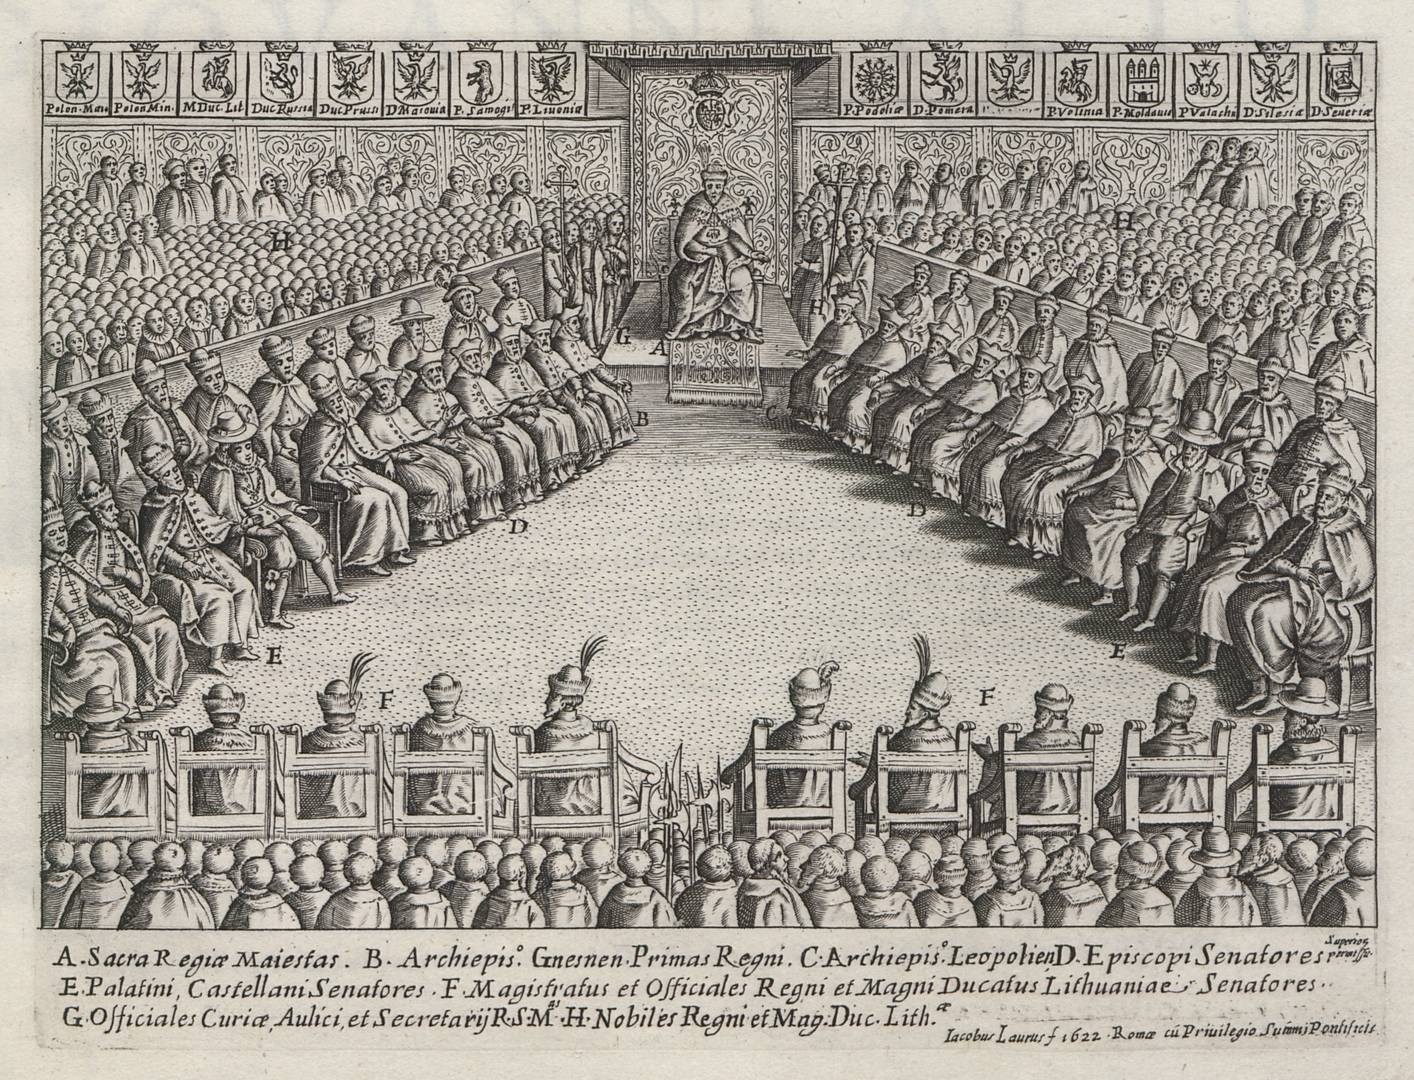 Polon. Mai. Polon Min. M Duc. Lit Duc Russia Duc Prussi D Mazouia P. Samogit P. Liuoniæ P. Podoliæ D. Pomera P. Volinia P. Moldauiæ P Valachi D. Silesiæ D Seueriæ
H H
H
G A
B C
D D
E E
F F
A. Sacra Regiæ Maiestas. B. Archiepis.º Gnesnen. Primas Regni. C. Archiepis.º Leopolien. D. Episcopi Senatores Superior permissu.
E. Palatini, Castellani Senatores. F. Magistratus et Officiales Regni et Magni Ducatus Lithuaniae Senatores.
G. Officiales Curiæ, Aulici, et Secretarij R. S. M.tis H. Nobiles Regni et Mag. Duc. Lith.æ
Iacobus Laurus f 1622. Romæ cū Priuilegio Summi Pontificis